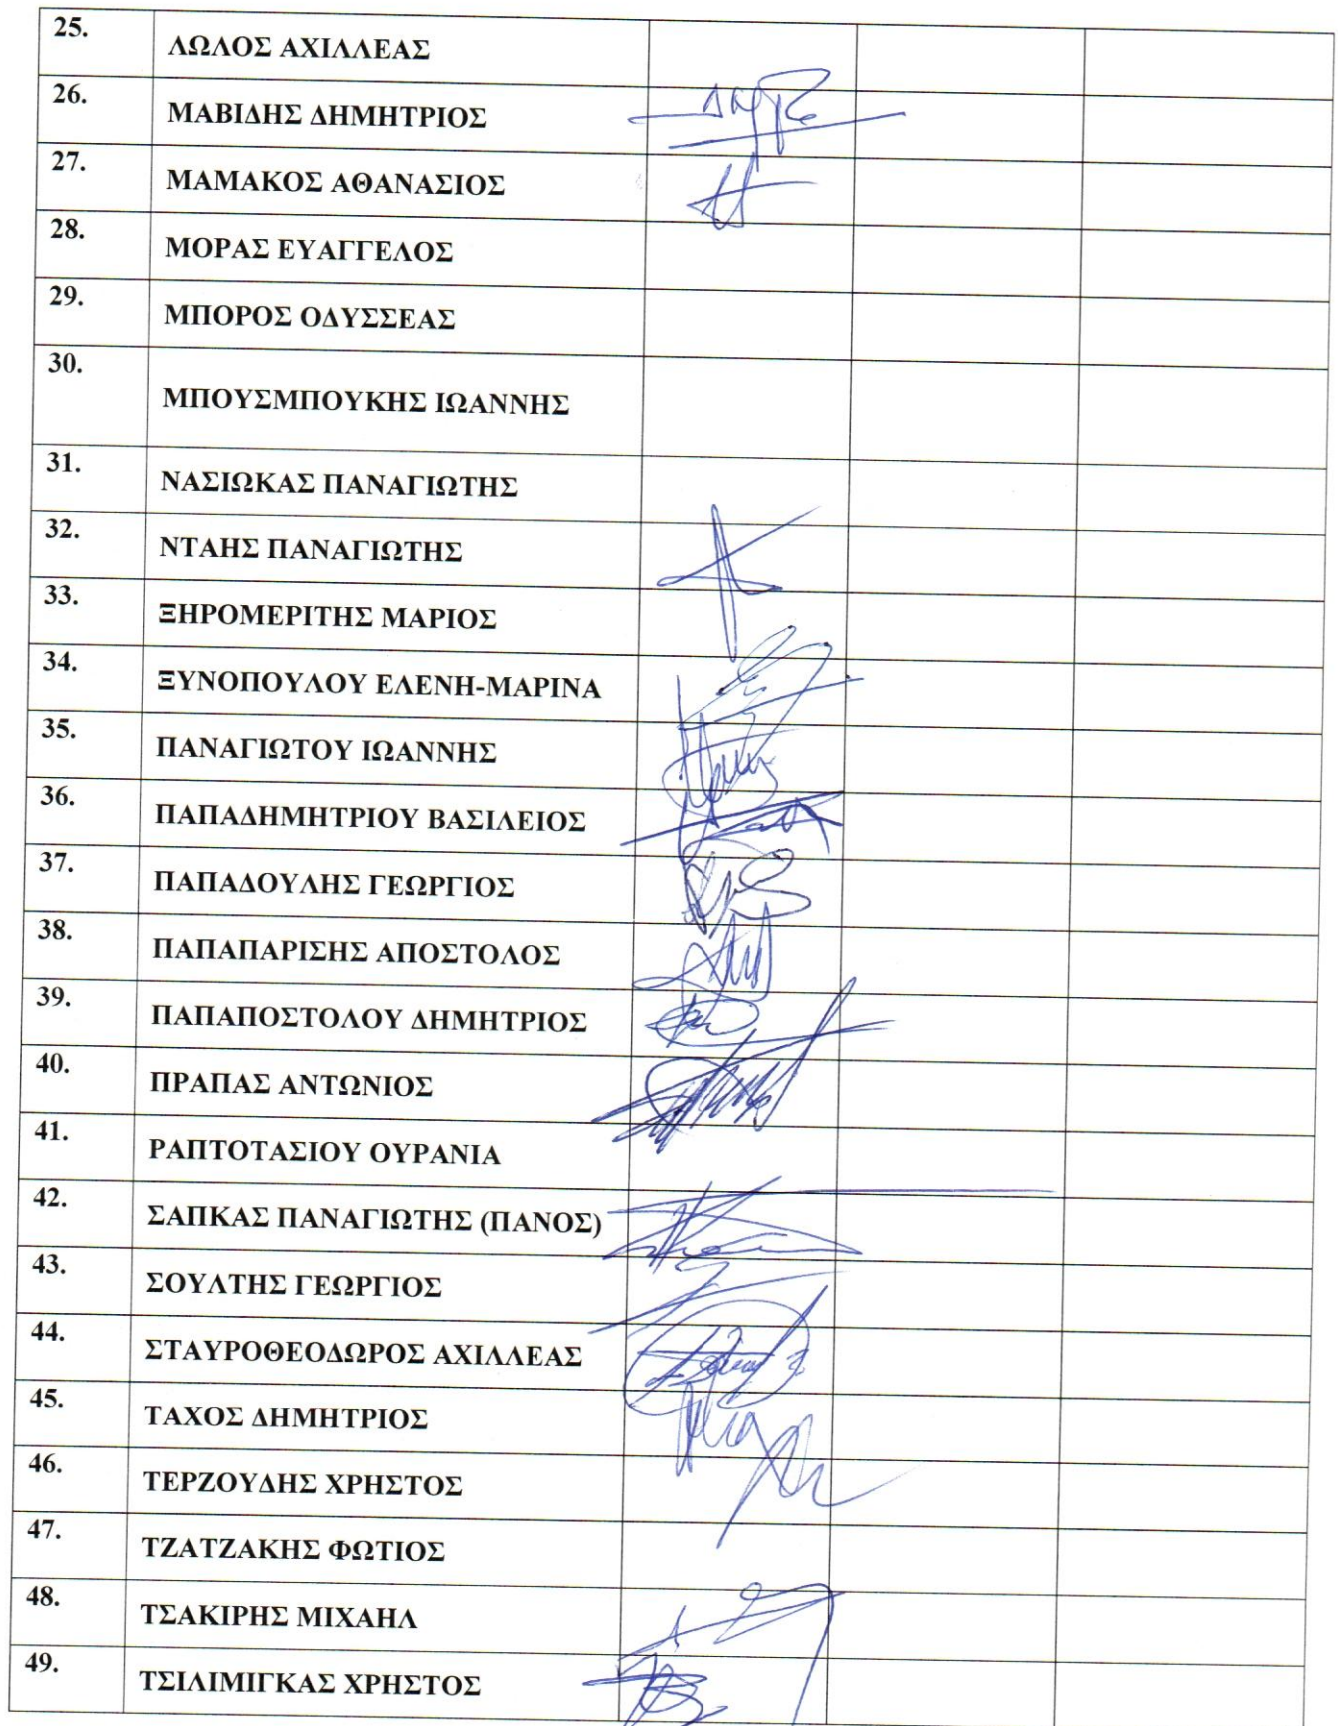 25. ΛΩΛΟΣ ΑΧΙΛΛΕΑΣ
26. ΜΑΒΙΔΗΣ ΔΗΜΗΤΡΙΟΣ
27. ΜΑΜΑΚΟΣ ΑΘΑΝΑΣΙΟΣ
28. ΜΟΡΑΣ ΕΥΑΓΓΕΛΟΣ
29. ΜΠΟΡΟΣ ΟΔΥΣΣΕΑΣ
30. ΜΠΟΥΣΜΠΟΥΚΗΣ ΙΩΑΝΝΗΣ
31. ΝΑΣΙΩΚΑΣ ΠΑΝΑΓΙΩΤΗΣ
32. ΝΤΑΗΣ ΠΑΝΑΓΙΩΤΗΣ
33. ΞΗΡΟΜΕΡΙΤΗΣ ΜΑΡΙΟΣ
34. ΞΥΝΟΠΟΥΛΟΥ ΕΛΕΝΗ-ΜΑΡΙΝΑ
35. ΠΑΝΑΓΙΩΤΟΥ ΙΩΑΝΝΗΣ
36. ΠΑΠΑΔΗΜΗΤΡΙΟΥ ΒΑΣΙΛΕΙΟΣ
37. ΠΑΠΑΔΟΥΛΗΣ ΓΕΩΡΓΙΟΣ
38. ΠΑΠΑΠΑΡΙΣΗΣ ΑΠΟΣΤΟΛΟΣ
39. ΠΑΠΑΠΟΣΤΟΛΟΥ ΔΗΜΗΤΡΙΟΣ
40. ΠΡΑΠΑΣ ΑΝΤΩΝΙΟΣ
41. ΡΑΠΤΟΤΑΣΙΟΥ ΟΥΡΑΝΙΑ
42. ΣΑΠΚΑΣ ΠΑΝΑΓΙΩΤΗΣ (ΠΑΝΟΣ)
43. ΣΟΥΛΤΗΣ ΓΕΩΡΓΙΟΣ
44. ΣΤΑΥΡΟΘΕΟΔΩΡΟΣ ΑΧΙΛΛΕΑΣ
45. ΤΑΧΟΣ ΔΗΜΗΤΡΙΟΣ
46. ΤΕΡΖΟΥΔΗΣ ΧΡΗΣΤΟΣ
47. ΤΖΑΤΖΑΚΗΣ ΦΩΤΙΟΣ
48. ΤΣΑΚΙΡΗΣ ΜΙΧΑΗΛ
49. ΤΣΙΛΙΜΙΓΚΑΣ ΧΡΗΣΤΟΣ